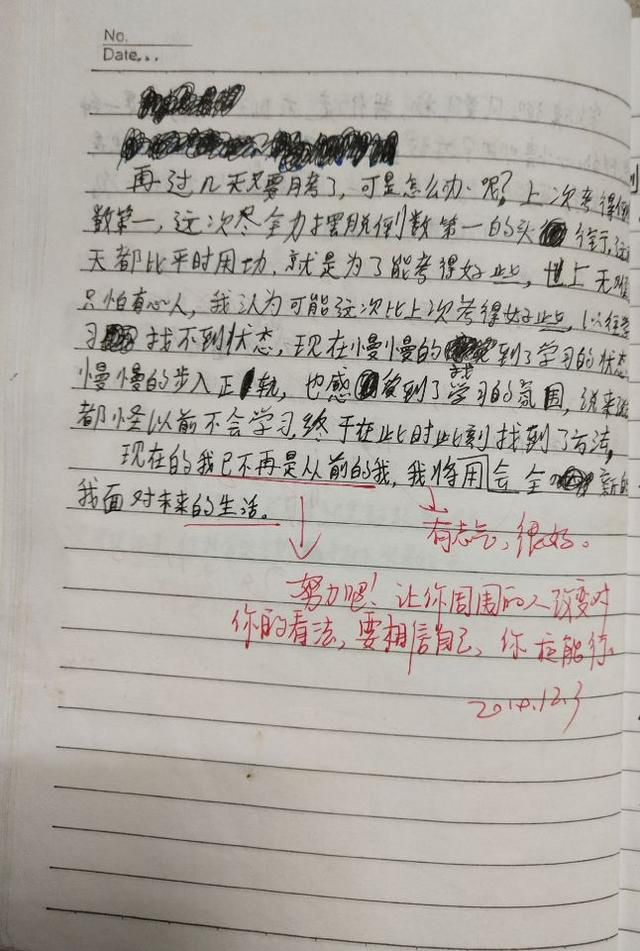 No.
Date...
再过几天只要月考了，可是怎么办呢？上次考得倒
数第一，这次尽全力摆脱倒数第一的头衔，这
天都比平时用功，就是为了能考得好些，世上无难
只怕有心人，我认为可能这次比上次考得好些，以往学
习找不到状态，现在慢慢的找到了学习的状态
慢慢的步入正轨，也感受到了学习的氛围，说来
都怪以前不会学习，终于在此时此刻找到了方法，
现在的我已不再是从前的我，我将用会全新的
我面对未来的生活。
有志气，很好。
努力吧！让你周围的人改变对
你的看法，要相信自己，你定能行。